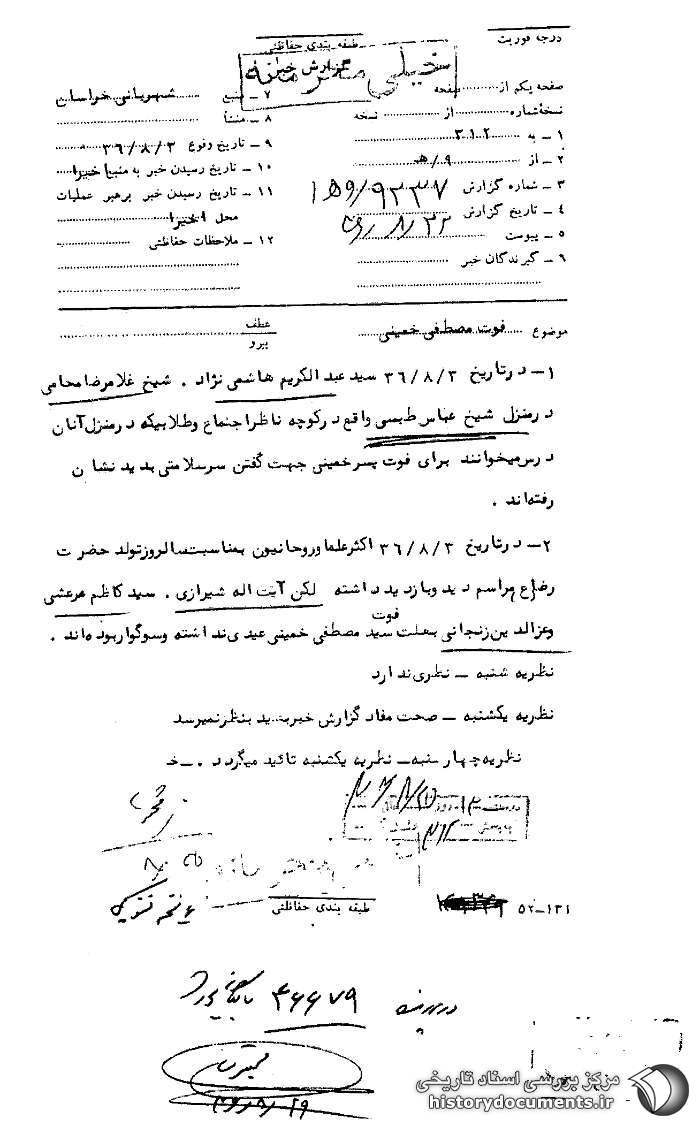 درجه فوریت
طبقه بندی حفاظتی
خیلی محرمانه
گزارش خبر
صفحه یکم از صفحه
نسخه شماره از نسخه
۱ - به ۳۱۲
۲ - از ۹/هـ
۳ - شماره گزارش ۱۵۹/۹۲۳۷
۴ - تاریخ گزارش ۳۶/۸/۲۲
۵ - پیوست
۶ - گیرندگان خبر
۷ - منبع شهربانی خراسان
۸ - منشأ
۹ - تاریخ وقوع ۳۶/۸/۳
۱۰ - تاریخ رسیدن خبر به منبع اخیرا
۱۱ - تاریخ رسیدن خبر برهبر عملیات
محل اخیرا
۱۲ - ملاحظات حفاظتی
موضوع فوت مصطفی خمینی
عطف
پیرو
۱- درتاریخ ۳۶/۸/۳ سید عبدالکریم هاشمی نژاد . شیخ غلامرضا محامی
درمنزل شیخ عباس طبسی واقع درکوچه ناظر اجتماع وطلابیکه درمنزل آنان
درس میخوانند برای فوت پسر خمینی جهت گفتن سرسلامتی بدیدنشان
رفته‌اند .
۲- درتاریخ ۳۶/۸/۳ اکثر علما وروحانیون بمناسبت سالروز تولد حضرت
رضا(ع) مراسم دید وبازدید داشته لکن آیت اله شیرازی . سید کاظم مرعشی
وعزالدین زنجانی بعلت فوت سید مصطفی خمینی عیدی نداشته وسوگوار بوده‌اند .
نظریه شنبه - نظری ندارد
نظریه یکشنبه - صحت مفاد گزارش خبر بعید بنظر نمیرسد
نظریه چهارشنبه- نظریه یکشنبه تائید میگردد .-خ
طبقه بندی حفاظتی
۵۲-۱۳۱
در پرونده ۴۶۶۷۹ بایگانی شود
۳۶/۸/۲۹
مرکز بررسی اسناد تاریخی
historydocuments.ir